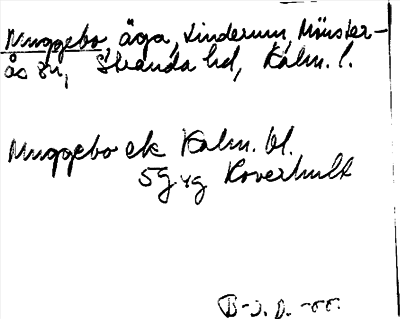 Muggebo, äga, Linderum, Mönster-
ås sn, Stranda hd, Kalm. l.
Muggebo ek Kalm. bl.
5G 4g Koverhult
B-J. D. -55.